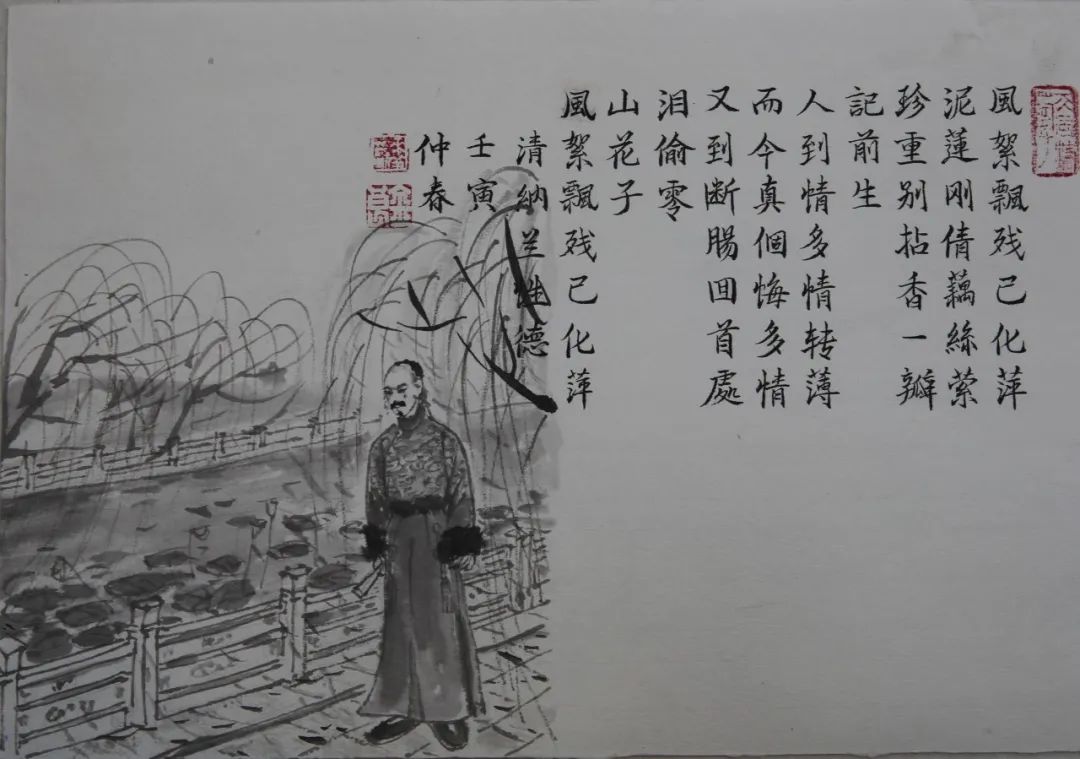 風絮飄残已化萍
泥蓮刚倩藕絲縈
珍重别拈香一瓣
記前生
人到情多情转薄
而今真個悔多情
又到断腸回首處
泪偷零
山花子
風絮飄残已化萍
清納兰性德
壬寅
仲春